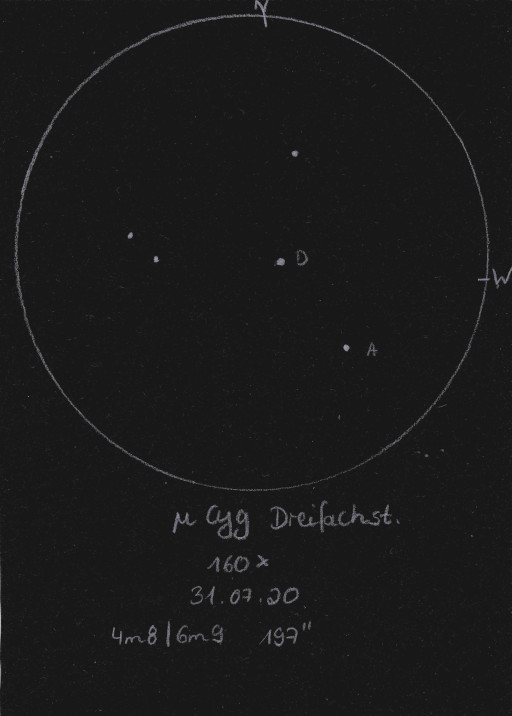 N
D
W
A
μ Cyg Dreifachst.
160x
31.07.20
4m8|6m9 197"